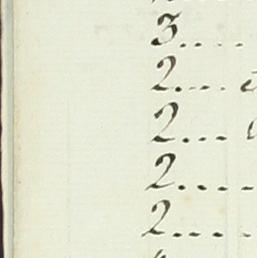 3....
2....
2...
2.....
2.....